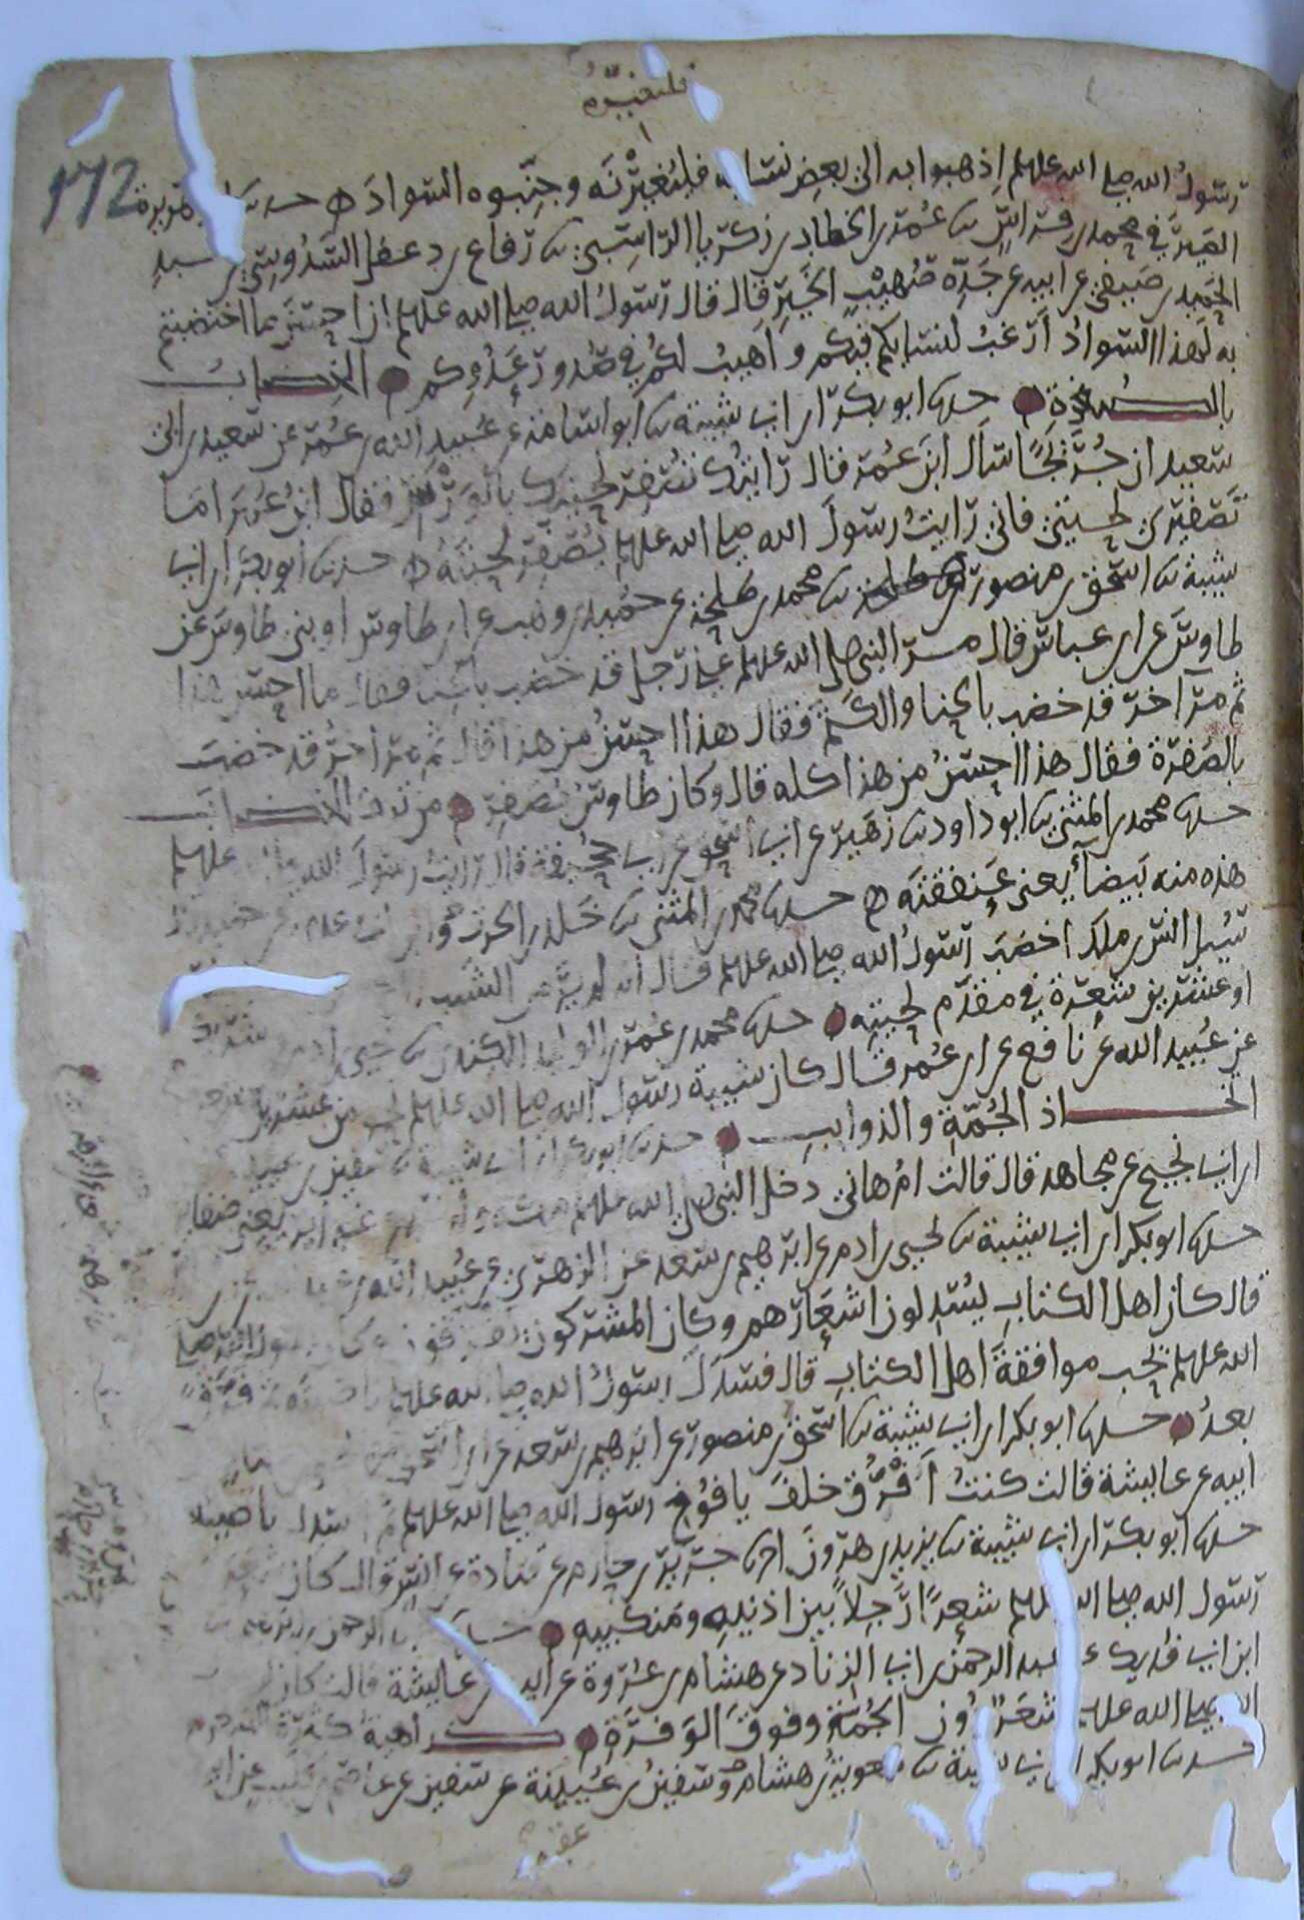 فلتغيره
172
رسول الله صلى الله عليه وسلم اذهبوا به الى بعض نسائه فلتغيرنه وجنبوه السواد حدثنا ابو هريرة
الصيرفي محمد بن فراس ثنا عمر بن الخطاب بن زكريا الراسبي ثنا دفاع بن دغفل السدوسي عن عبد
الحميد بن صيفي عن ابيه عن جده صهيب الخير قال قال رسول الله صلى الله عليه وسلم ان احسن ما اختضبتم
به لهذا السواد ارغب لنسائكم فيكم واهيب لكم في صدور عدوكم الخضاب
بالصفرة حدثنا ابو بكر ابن ابي شيبة ثنا ابو اسامة عن عبيد الله بن عمر عن سعيد بن ابي
سعيد ان جريجا سال ابن عمر قال رايتك تصفر لحيتك بالورس فقال ابن عمر اما
تصفيري لحيتي فاني رايت رسول الله صلى الله عليه وسلم يصفر لحيته حدثنا ابو بكر ابن ابي
شيبة ثنا اسحق بن منصور ثنا محمد بن طلحة عن حميد بن وهب عن ابن طاوس او بني طاوس عن
طاوس عن ابن عباس قال مر النبي صلى الله عليه وسلم على رجل قد خضب بالحنا فقال ما احسن هذا
ثم مر آخر قد خضب بالحنا والكتم فقال هذا احسن من هذا قال ثم مر اخر قد خضب
بالصفرة فقال هذا احسن من هذا كله قال وكان طاوس يصفر من ترك الخضاب
حدثنا محمد بن المثنى ثنا ابو داود ثنا زهير عن ابي اسحق عن ابي جحيفة قال رايت رسول الله صلى الله عليه وسلم
هذه منه بيضا يعني عنفقته حدثنا محمد بن المثنى ثنا خلد بن الحرث وابن ابي عدي عن حميد قال
سئل انس بن ملك اخضب رسول الله صلى الله عليه وسلم قال انه لم ير من الشيب
او عشرين شعرة في مقدم لحيته حدثنا محمد بن عمر بن الوليد الكندي ثنا يحيى بن ادم
عن عبيد الله عن نافع عن ابن عمر قال كان شيب رسول الله صلى الله عليه وسلم نحو من عشرين
اتخاذ الجمة والذوايب حدثنا ابو بكر ابن ابي شيبة ثنا سفين بن عيينة
ابن ابي نجيح عن مجاهد قال قالت ام هاني دخل النبي صلى الله عليه وسلم مكة وله اربع غداير يعني ضفاير
حدثنا ابو بكر ابن ابي شيبة ثنا يحيى بن ادم عن ابرهيم بن سعد عن الزهري عن عبيد الله
قال كان اهل الكتاب يسدلون اشعارهم وكان المشركون يفرقون وكان رسول الله صلى
الله عليه وسلم يحب موافقة اهل الكتاب قال فسدل رسول الله صلى الله عليه وسلم ناصيته ثم فرق
بعد حدثنا ابو بكر ابن ابي شيبة ثنا اسحق بن منصور عن ابرهيم بن سعد عن ابن اسحق
ابيه عن عايشة قالت كنت افرق خلف يافوخ رسول الله صلى الله عليه وسلم ثم اسدل ناصيته
حدثنا ابو بكر ابن ابي شيبة ثنا يزيد بن هرون انا جرير بن حازم عن قتادة عن انس قال كان شعر
رسول الله صلى الله عليه وسلم شعرا رجلا بين اذنيه ومنكبيه حدثنا عبد الرحمن بن ابرهيم ثنا
ابن ابي فديك عن عبد الرحمن بن ابي الزناد عن هشام بن عروة عن ابيه عن عايشة قالت كان
الله صلى الله عليه وسلم شعر دون الجمة وفوق الوفرة كراهية كثرة الشعر
حدثنا ابو بكر ابن ابي شيبة ثنا معوية بن هشام وسفين بن عيينة عن سفين عن عاصم بن كليب عن ابيه